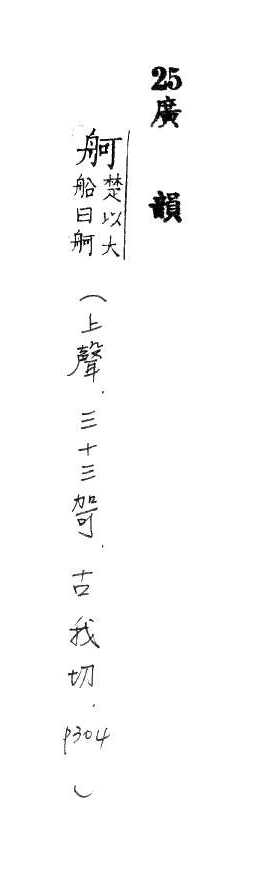 25廣韻
舸楚以大船曰舸（上聲．三十三哿．古我切．p304）